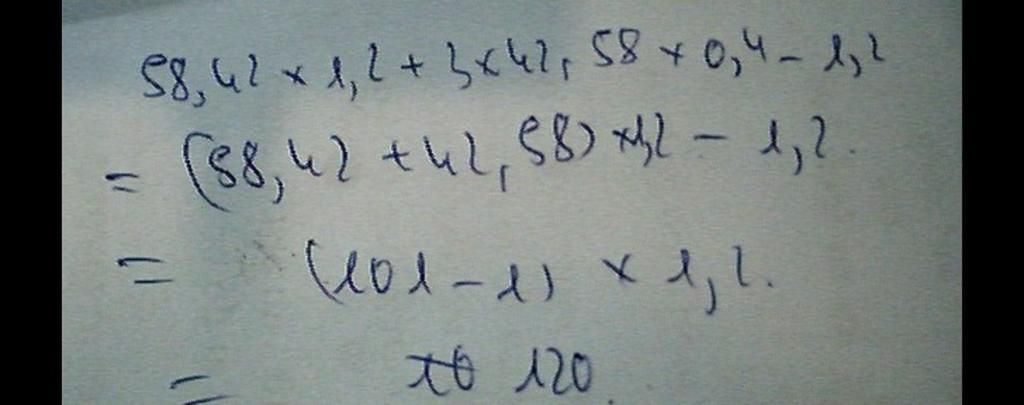 58,42 × 1,2 + 3 × 42,58 × 0,4 - 1,2
= (58,42 + 42,58) × 1,2 - 1,2.
= (101 - 1) × 1,2.
= 120